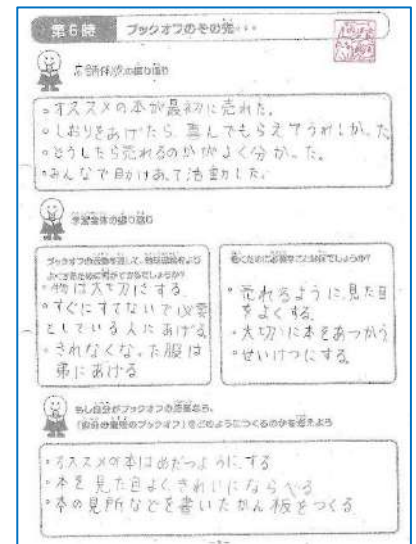 第6時 ブックオフのその先・・・
お店体験の振り返り
・オススメの本が最初に売れた。
・しおりをあげたら、喜んでもらえてうれしかった
・どうしたら売れるのかがよく分かった。
・みんなで助けあって活動した。
学習全体の振り返り
・物は大切にする
・すぐにすてないで必要
としている人にあげる
・きれなくなった服は
弟にあげる
働くために必要なことは何でしょうか?
・売れるように見た目
をよくする。
・大切に本をあつかう
・せいけつにする。
もし自分がブックオフの店長なら、
「自分の理想のブックオフ」をどのようにつくるのかを考えよう
・オススメの本はめだつように、する
・本を見た目よく、きれいにならべる
・本の見所などを書いたかん板をつくる